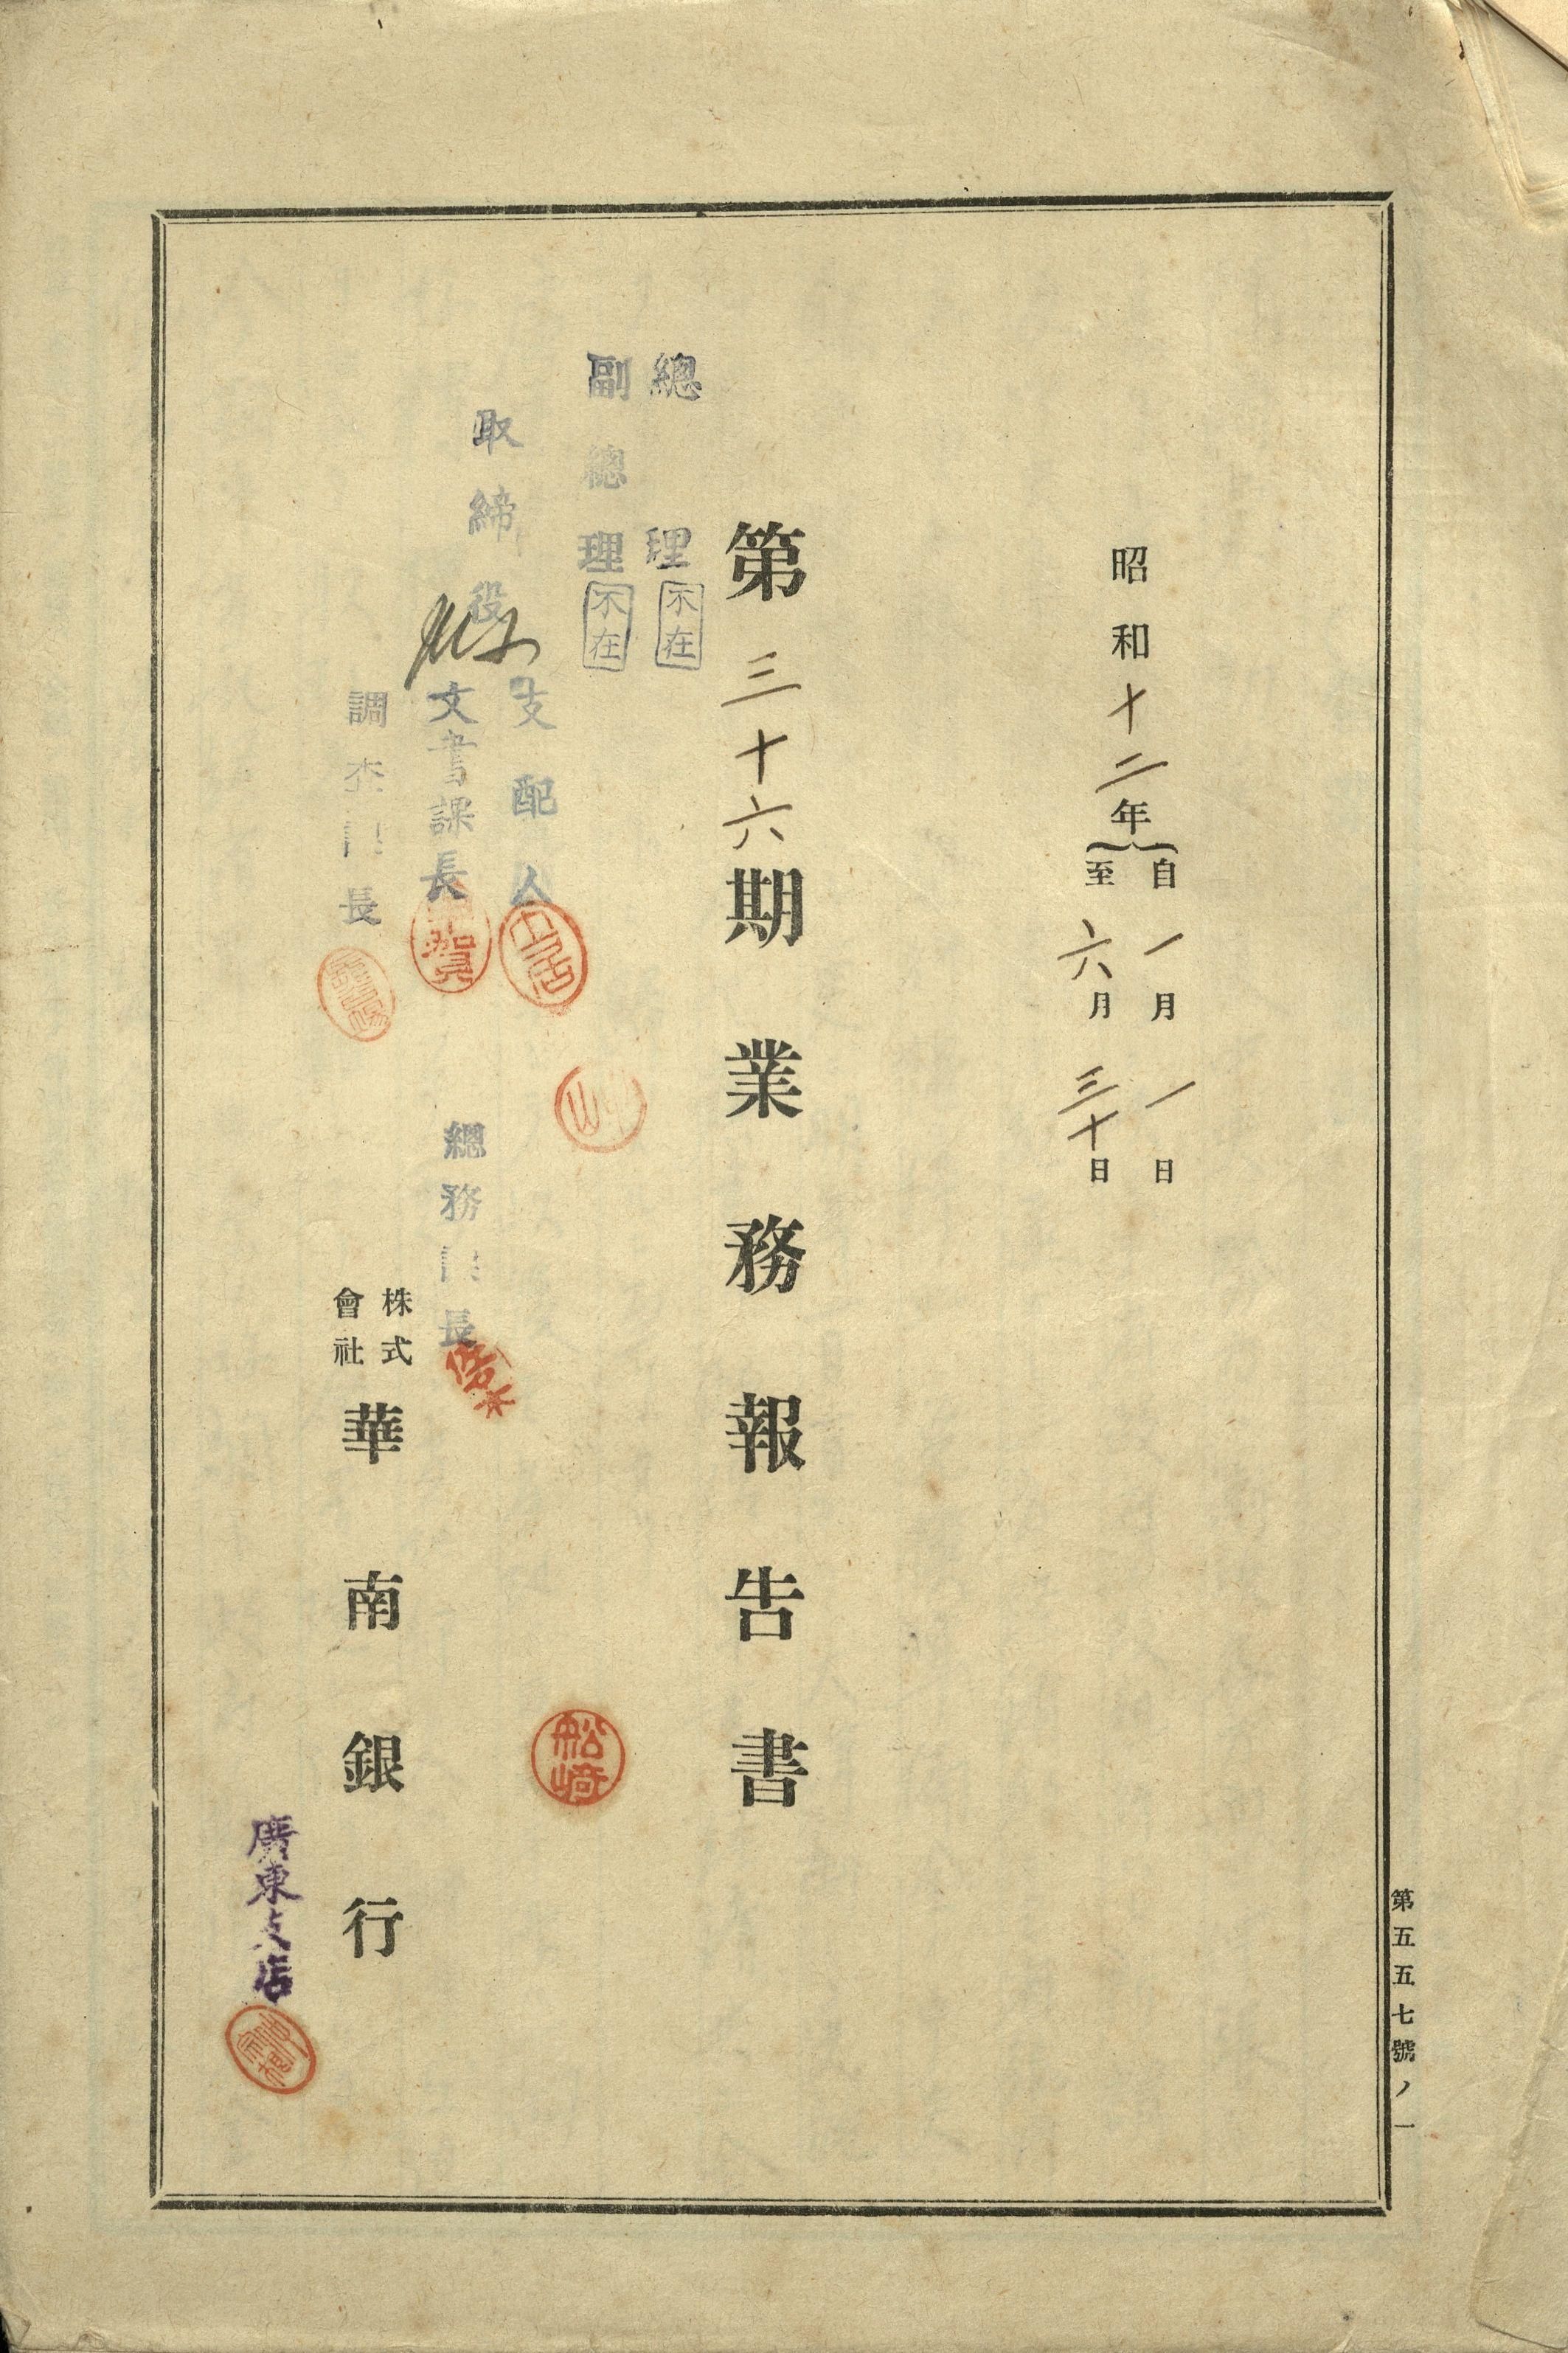 昭和十二年
自一月一日
至六月三十日
第三十六期業務報告書
總理
不在
副總理
不在
取締役
支配人
文書課長
調査課長
總務課長
船崎
株式會社華南銀行
廣東支店
第五五七號ノ一